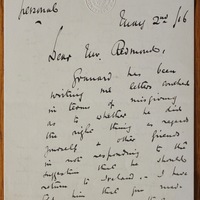 personal
May 2nd /16
Dear Mr. Redmond,
Granard has been
writing me letters couched
in terms of misgiving
as to whether he did
the right thing as regards
yourself & other friends
in not responding to the
suggestion that he should
return to Ireland. I have
him that you need